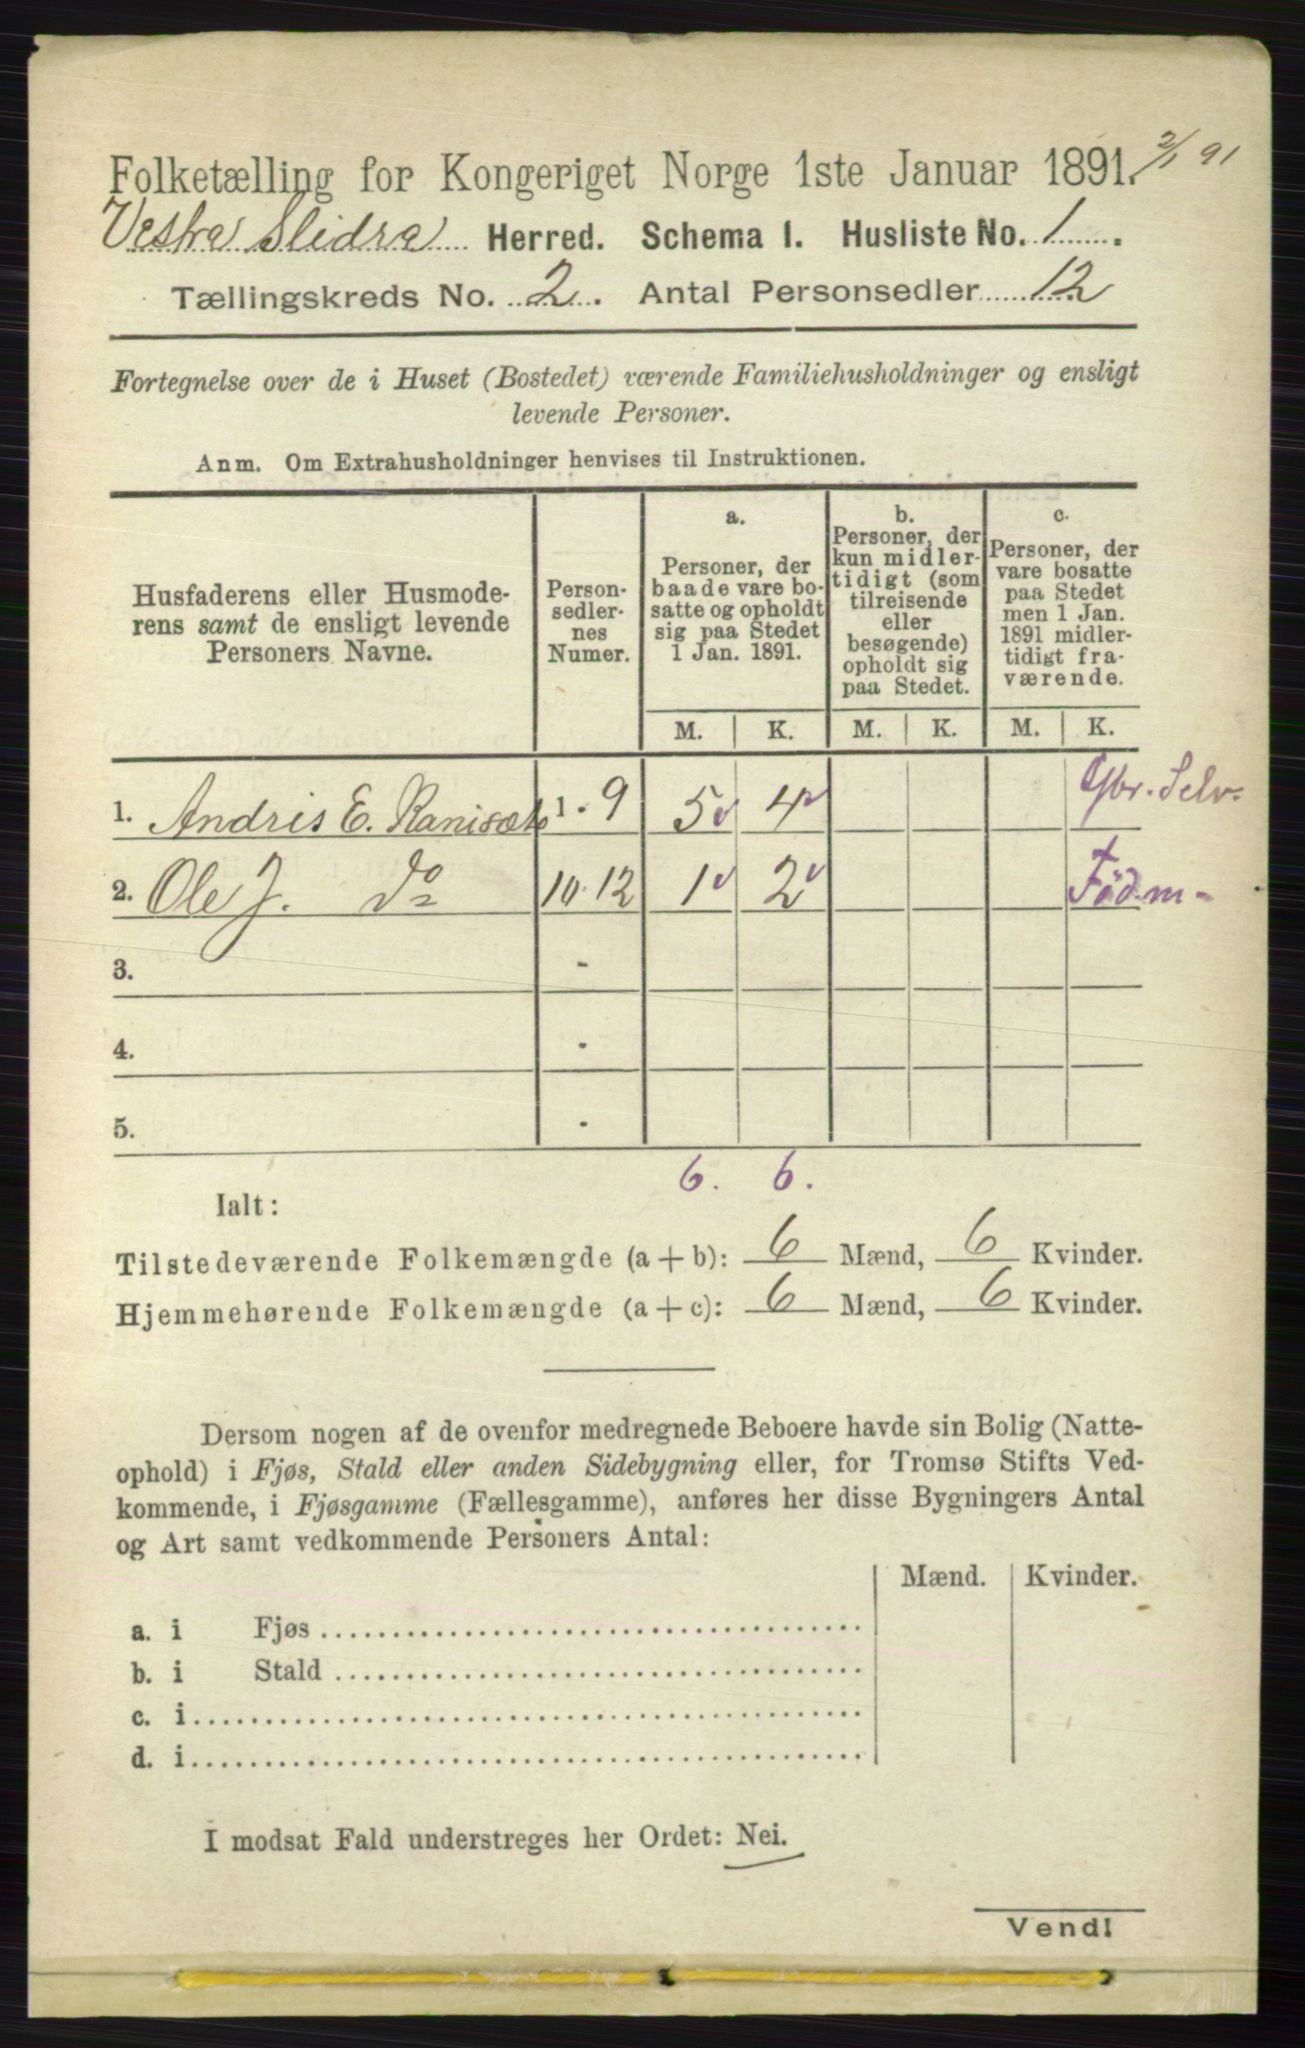 Folketælling for Kongeriget Norge 1ste Januar 1891. 2/1 91
Vestre Slidre Herred. Schema I. Husliste No. 1.
Tællingskreds No. 2. Antal Personsedler 12
Fortegnelse over de i Huset (Bostedet) værende Familiehusholdninger og ensligt
levende Personer.
Anm. Om Extrahusholdninger henvises til Instruktionen.
Husfaderens eller Husmode-
rens samt de ensligt levende
Personers Navne.
Person-
sedler-
nes
Numer.
a.
Personer, der
baade vare bo-
satte og opholdt
sig paa Stedet
1 Jan. 1891.
b.
Personer, der
kun midler-
tidigt (som
tilreisende
eller
besøgende)
opholdt sig
paa Stedet.
c.
Personer, der
vare bosatte
paa Stedet
men 1 Jan.
1891 midler-
tidigt fra-
værende.
M. K. M. K. M. K.
1. Andris E. Ranisæt 1 - 9 5 4 Gbr. Selv-
2. Ole J. do 10-12 1 2 Föd.m-
3. -
4. -
5. -
6. 6.
Ialt:
Tilstedeværende Folkemængde (a + b): 6 Mænd, 6 Kvinder.
Hjemmehørende Folkemængde (a + c): 6 Mænd, 6 Kvinder.
Dersom nogen af de ovenfor medregnede Beboere havde sin Bolig (Natte-
ophold) i Fjøs, Stald eller anden Sidebygning eller, for Tromsø Stifts Ved-
kommende, i Fjøsgamme (Fællesgamme), anføres her disse Bygningers Antal
og Art samt vedkommende Personers Antal:
Mænd. Kvinder.
a. i Fjøs
b. i Stald
c. i
d. i
I modsat Fald understreges her Ordet: Nei.
Vend!